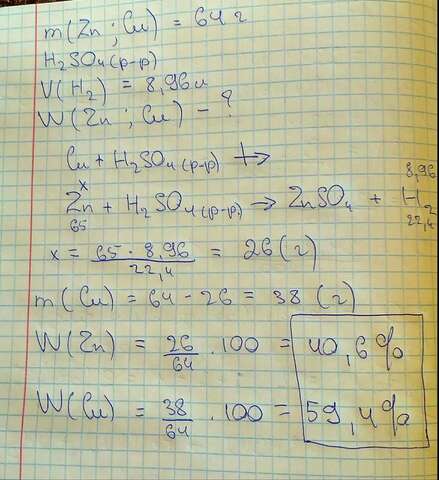 m(Zn ; Cu) = 64 г
H2SO4(р-р)
V(H2) = 8,96 л
W(Zn ; Cu) - ?
Cu + H2SO4(р-р) ↛
x 8,96
Zn + H2SO4(р-р) → ZnSO4 + H2
65 22,4
x = 65 · 8,96 / 22,4 = 26 (г)
m(Cu) = 64 - 26 = 38 (г)
W(Zn) = 26/64 · 100 = 40,6%
W(Cu) = 38/64 · 100 = 59,4%